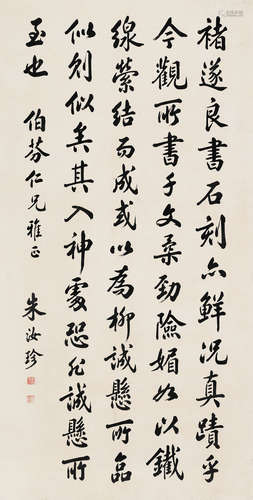 褚遂良書石刻亦鮮況真蹟乎
今觀所書千文柔勁險媚如以鐵
線縈結而成或以為柳誠懸所臨
似則似矣其入神處恐非誠懸所
至也
伯芬仁兄雅正
朱汝珍